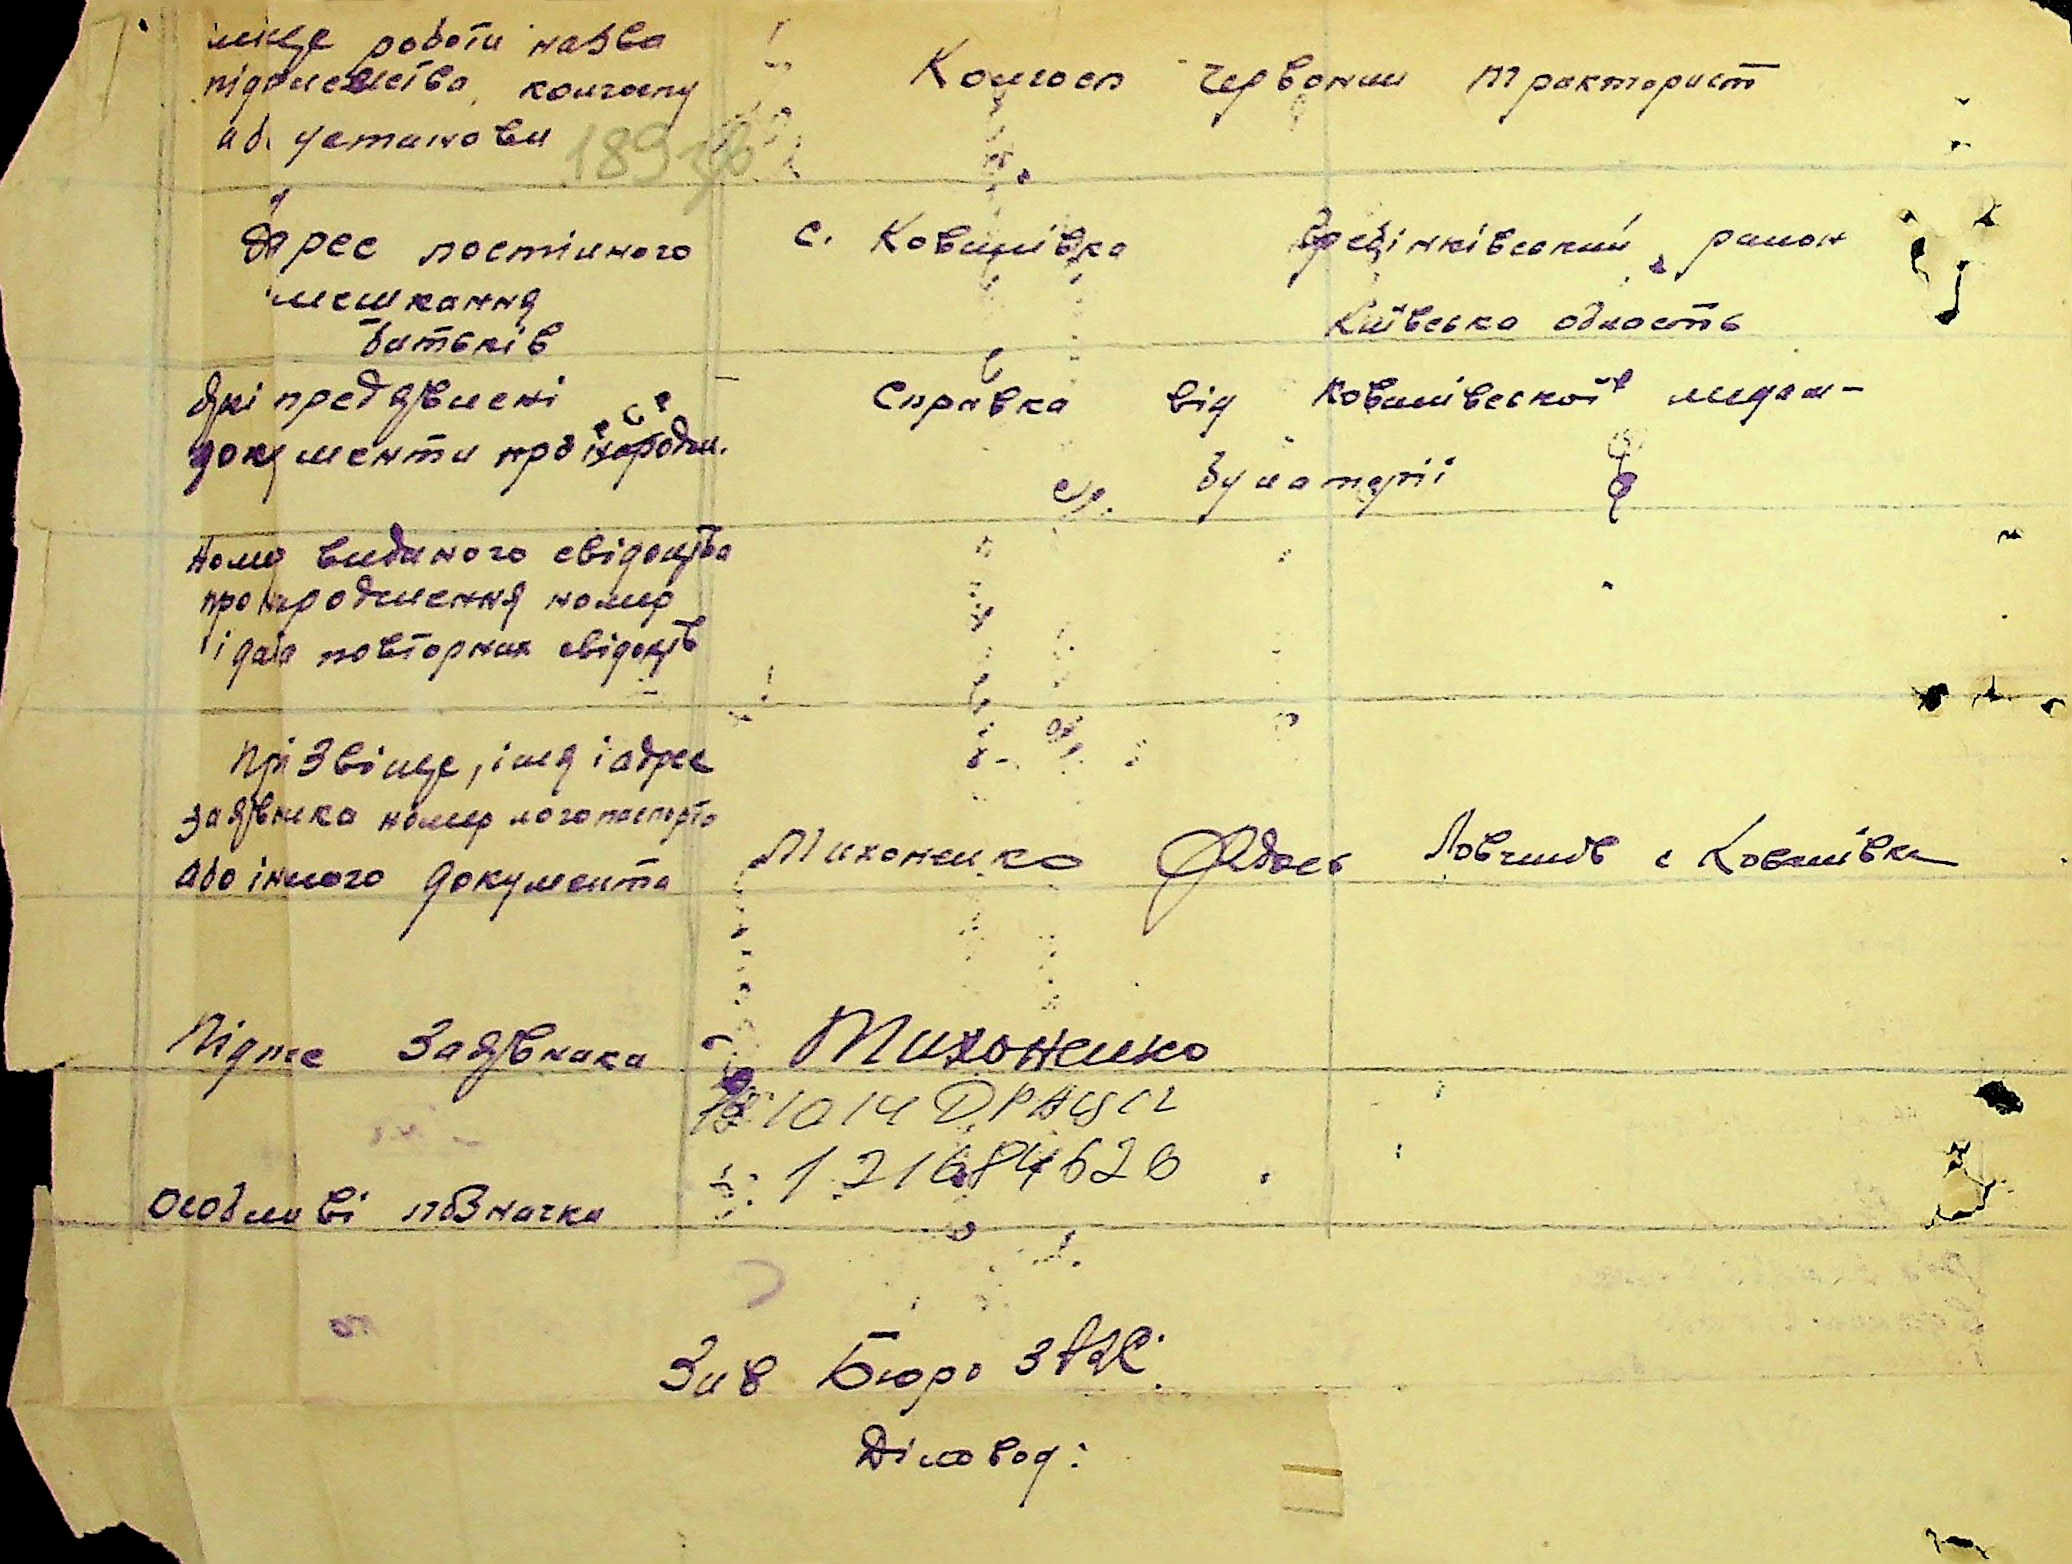 місце роботи назва
підприємства, колгоспу
або установи
189
Колгосп Червоний тракторист
Адрес постійного
мешкання
батьків
с. Ковшівка Гребінківський район
Київська область
Які пред'явлені
документи про народж.
Справка від Ковшівеської медам-
булаторії
Номер виданого свідоцтва
про народження номер
і дата повторних свідоцтв
Прізвіще, імя і адрес
заявника номер його паспорта
або іншого документа
Тихоненко с Ковшівка
Підпис Заявника
Тихоненко
1014 ДРАЦСГ
Особливі позначки
Зав Бюро ЗАГС.
Діловод: